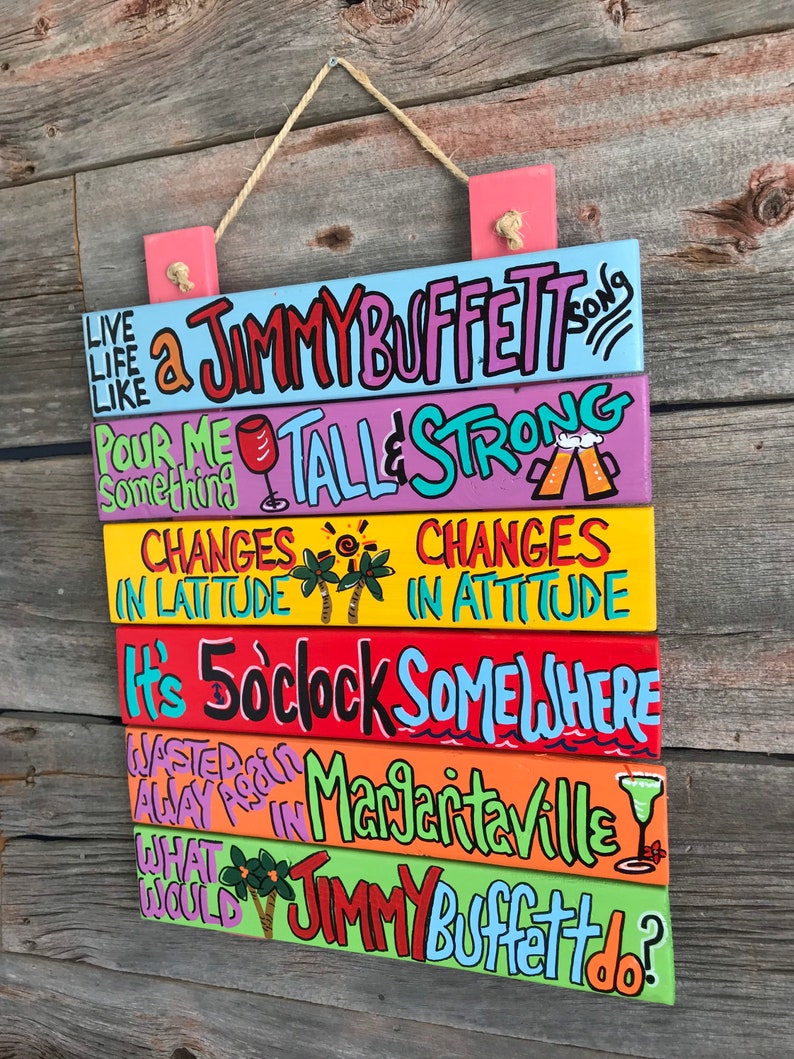 LIVE
LIFE
LIKE
a JIMMY BUFFETT SONG
POUR ME
Something
TALL & STRONG
CHANGES
IN LATITUDE
CHANGES
IN ATTITUDE
It's 5 o'clock SOMEWHERE
WASTED
AWAY Again
IN Margaritaville
WHAT
WOULD
JIMMY Buffett do?